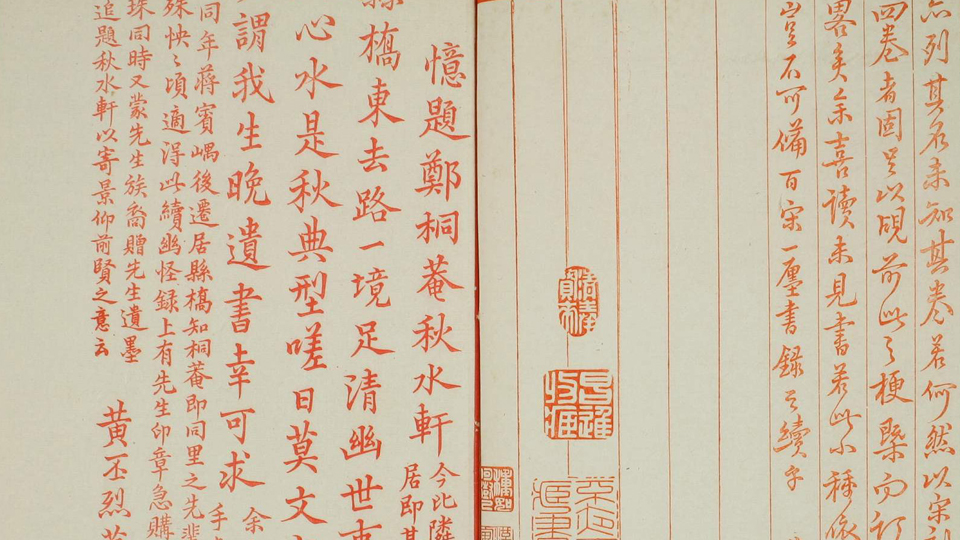 列其名未知其卷若何然以宋
四卷者固足以覘前此之梗槩而
畧矣余喜讀未見書若此小種依
豈不可備百宋一廛書錄之續乎
憶題鄭桐菴秋水軒
今比隣
居即其
橋東去路一境足清幽世事
心水是秋典型嗟日莫文
謂我生晚遺書幸可求
余
手
同年蔣賓嵎後遷居縣橋知桐菴即同里之先輩
殊怏〻頃適得此續幽怪録上有先生印章急購
珠同時又蒙先生族裔贈先生遺墨
追題秋水軒以寄景仰前賢之意云
黄丕烈